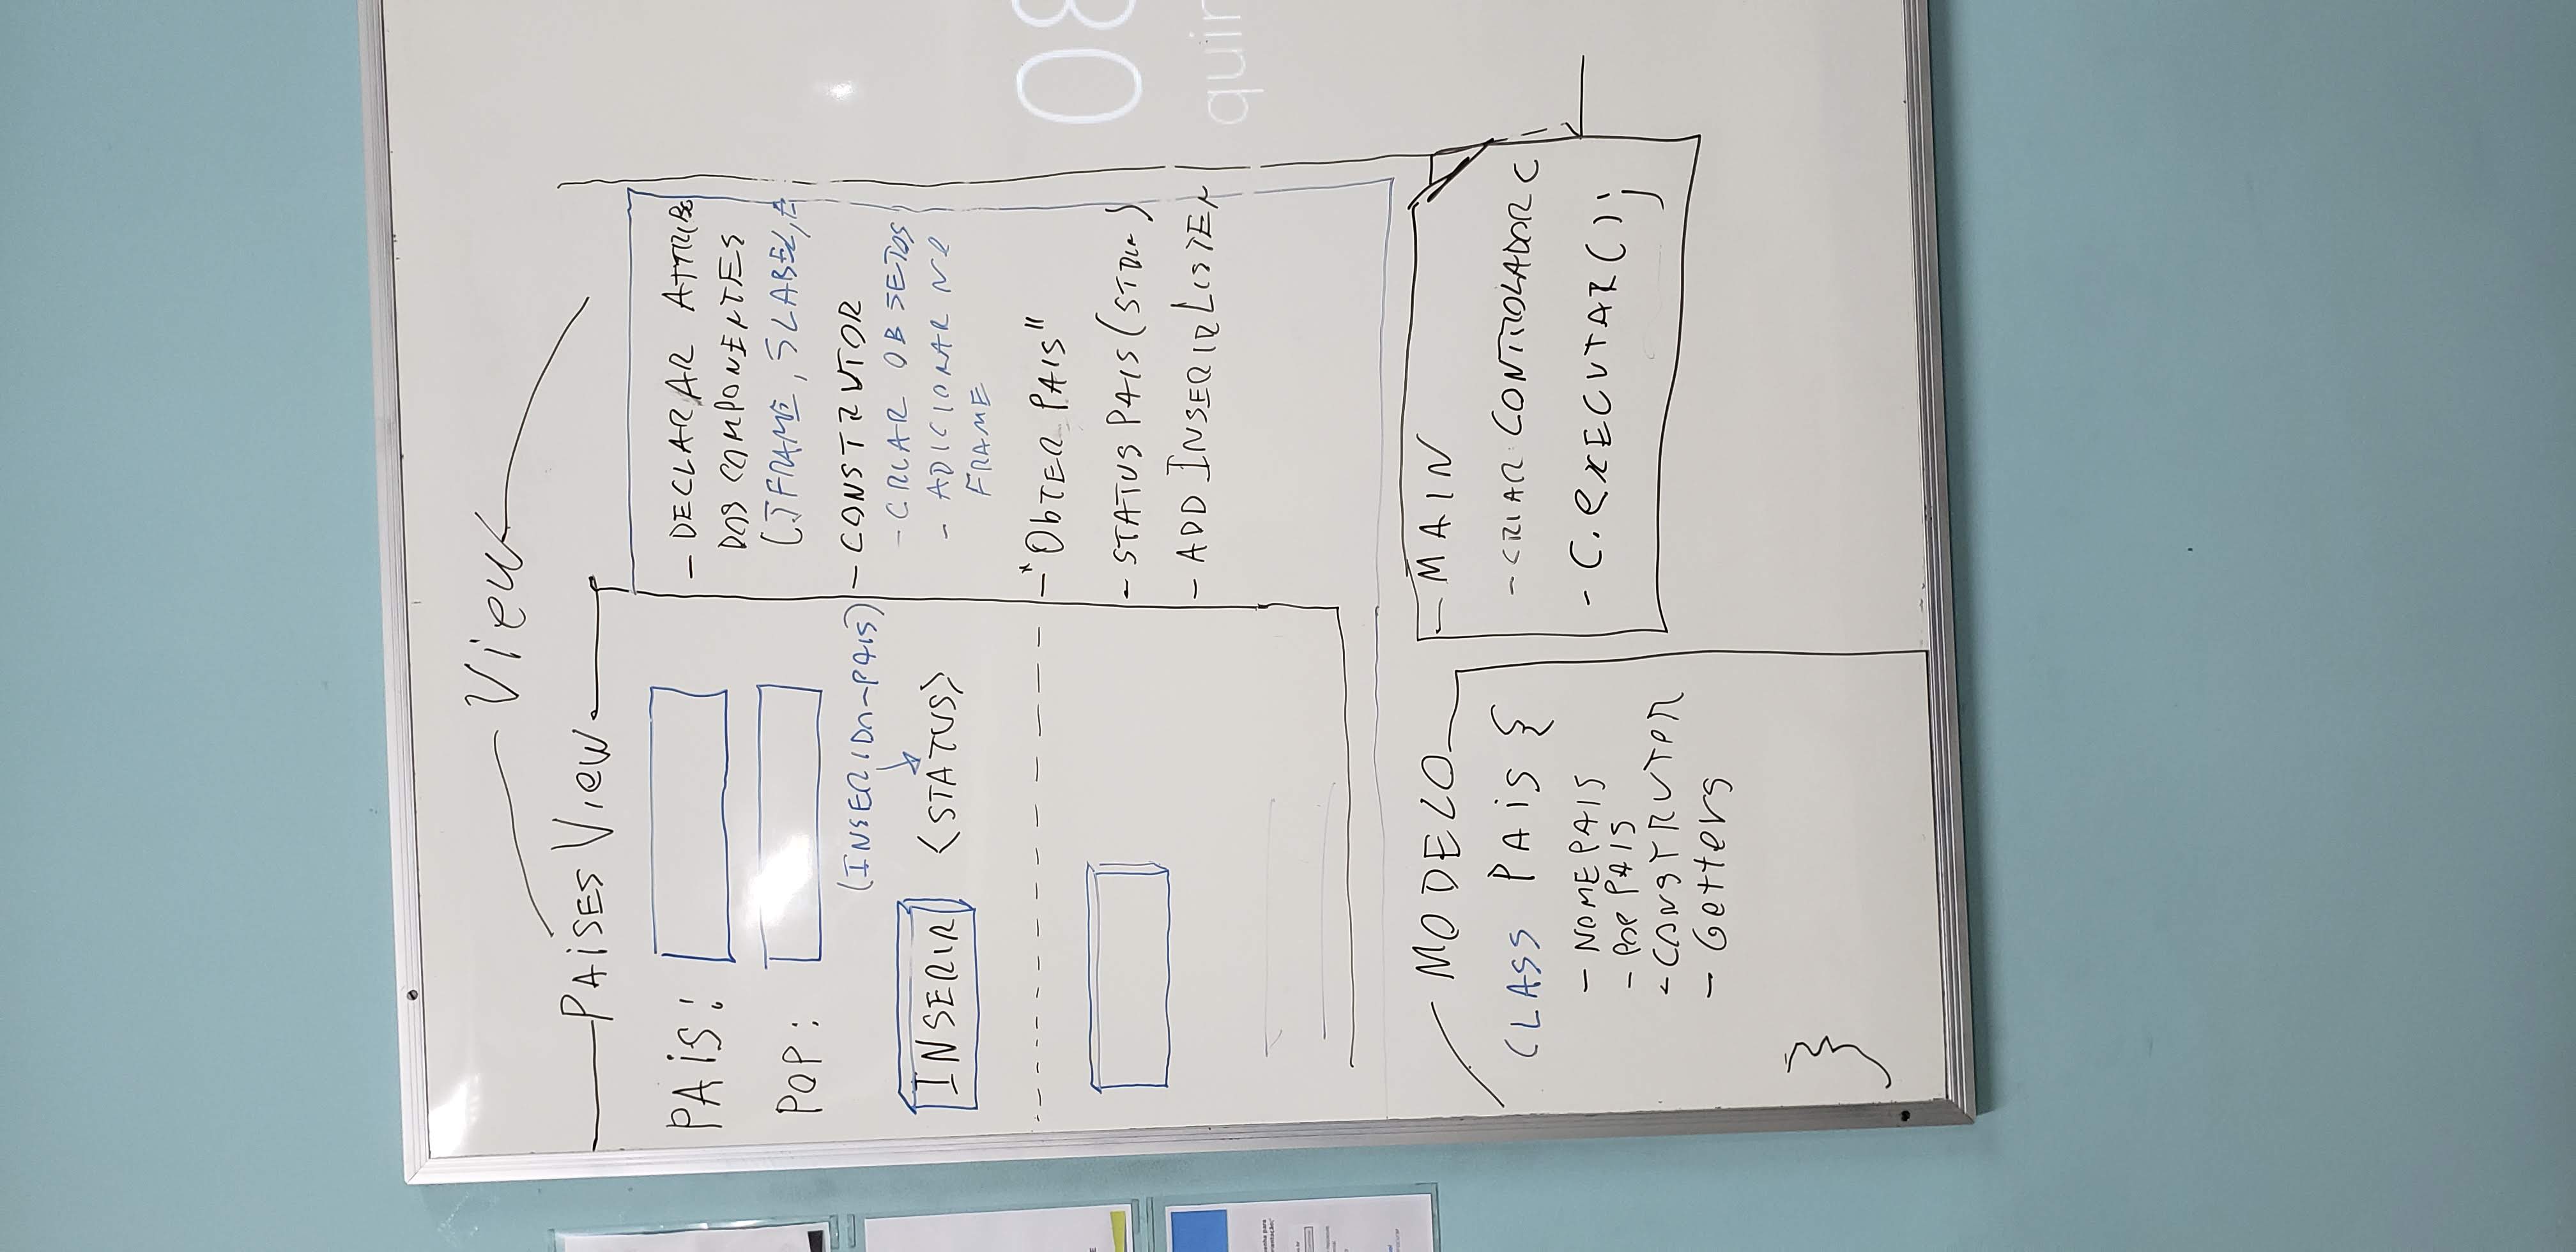 View
PAISES View
PAIS:
POP:
(INSERIDO-PAIS)
INSERIR <STATUS>
- DECLARAR ATTRIB
DOS COMPONENTES
(JFRAME, JLABEL,
- CONSTRUTOR
- CRIAR OBJETOS
- ADICIONAR NO
FRAME
- "ObTER PAIS"
- STATUS PAIS (
- ADD INSERIR LISTEN
08
quin
MODELO
CLASS PAIS {
- NOME PAIS
- POP PAIS
- CONSTRUTOR
- Getters
}
- MAIN
- CRIAR CONTROLADOR C
- C.eXECUTAR();